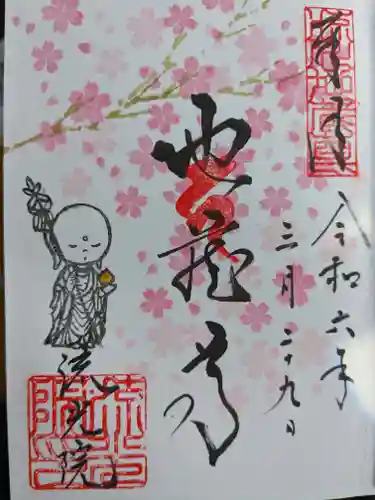 奉拝
令和六年
三月二十九日
地蔵尊
流光院